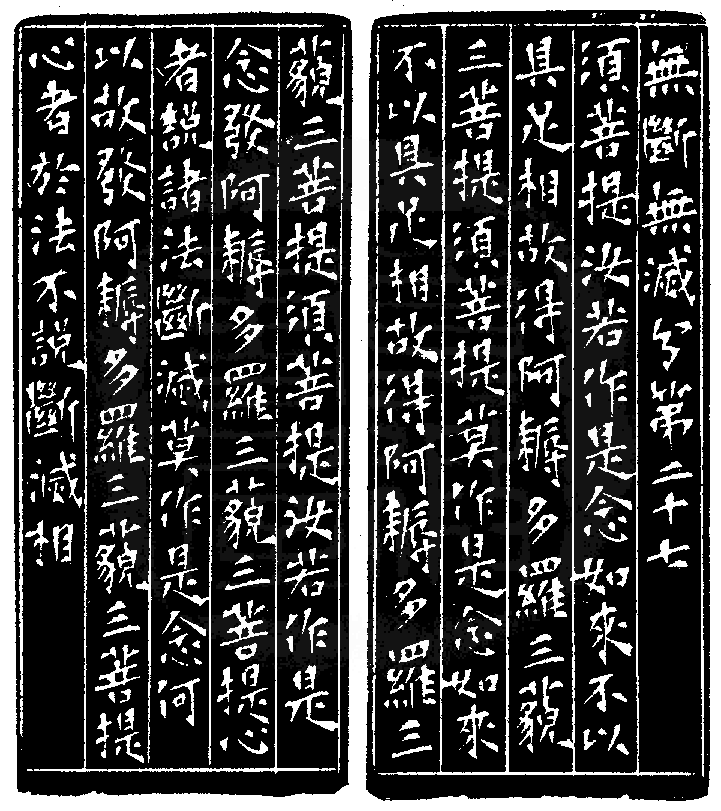 無斷無滅分第二十七
須菩提汝若作是念如來不以
具足相故得阿耨多羅三藐
三菩提須菩提莫作是念如來
不以具足相故得阿耨多羅三
藐三菩提須菩提汝若作是
念發阿耨多羅三藐三菩提心
者說諸法斷滅莫作是念何
以故發阿耨多羅三藐三菩提
心者於法不說斷滅相